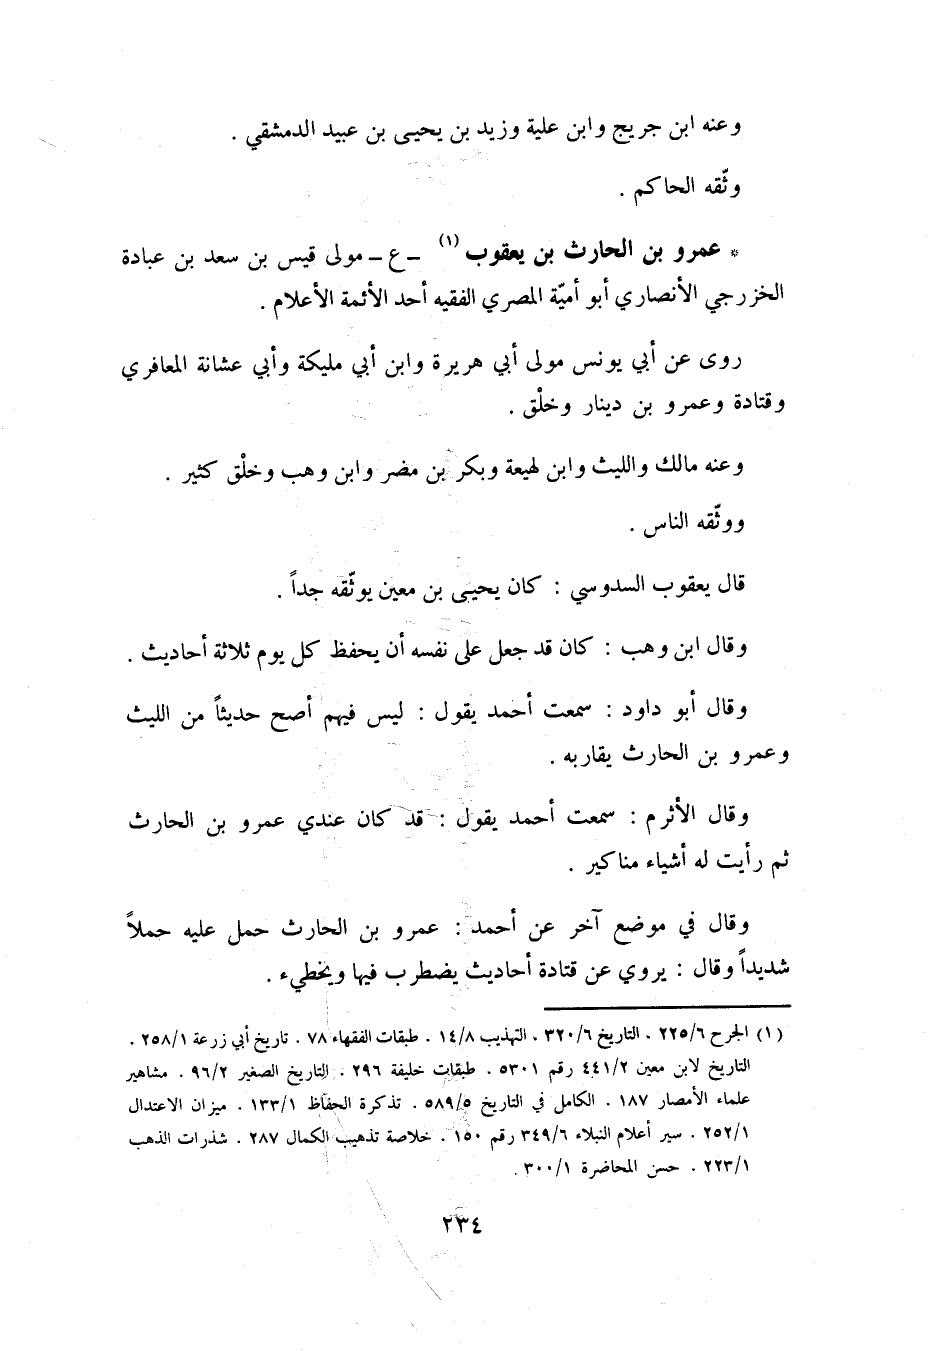 وعنه ابن جريج وابن علية وزيد بن يحيى بن عبيد الدمشقي .
وثّقه الحاكم .
* عمرو بن الحارث بن يعقوب (١) ـ ع ـ مولى قيس بن سعد بن عبادة
الخزرجي الأنصاري أبو أميّة المصري الفقيه أحد الأئمة الأعلام .
روى عن أبي يونس مولى أبي هريرة وابن أبي مليكة وأبي عشانة المعافري
وقتادة وعمرو بن دينار وخلْق .
وعنه مالك والليث وابن لهيعة وبكر بن مضر وابن وهب وخلْق كثير .
ووثّقه الناس .
قال يعقوب السدوسي : كان يحيى بن معين يوثّقه جداً .
وقال ابن وهب : كان قد جعل على نفسه أن يحفظ كل يوم ثلاثة أحاديث .
وقال أبو داود : سمعت أحمد يقول : ليس فيهم أصح حديثاً من الليث
وعمرو بن الحارث يقاربه .
وقال الأثرم : سمعت أحمد يقول : قد كان عندي عمرو بن الحارث
ثم رأيت له أشياء مناكير .
وقال في موضع آخر عن أحمد : عمرو بن الحارث حمل عليه حملاً
شديداً وقال : يروي عن قتادة أحاديث يضطرب فيها ويخطيء .
(١) الجرح ٢٢٥/٦ . التاريخ ٣٢٠/٦ . التهذيب ١٤/٨ . طبقات الفقهاء ٧٨ . تاريخ أبي زرعة ٢٥٨/١ .
التاريخ لابن معين ٤٤١/٢ رقم ٥٣٠١ . طبقات خليفة ٢٩٦ . التاريخ الصغير ٩٦/٢ . مشاهير
علماء الأمصار ١٨٧ . الكامل في التاريخ ٥٨٩/٥ . تذكرة الحفاظ ١٣٣/١ . ميزان الاعتدال
٢٥٢/١ . سير أعلام النبلاء ٣٤٩/٦ رقم ١٥٠ . خلاصة تذهيب الكمال ٢٨٧ . شذرات الذهب
٢٢٣/١ . حسن المحاضرة ٣٠٠/١ .
٢٣٤